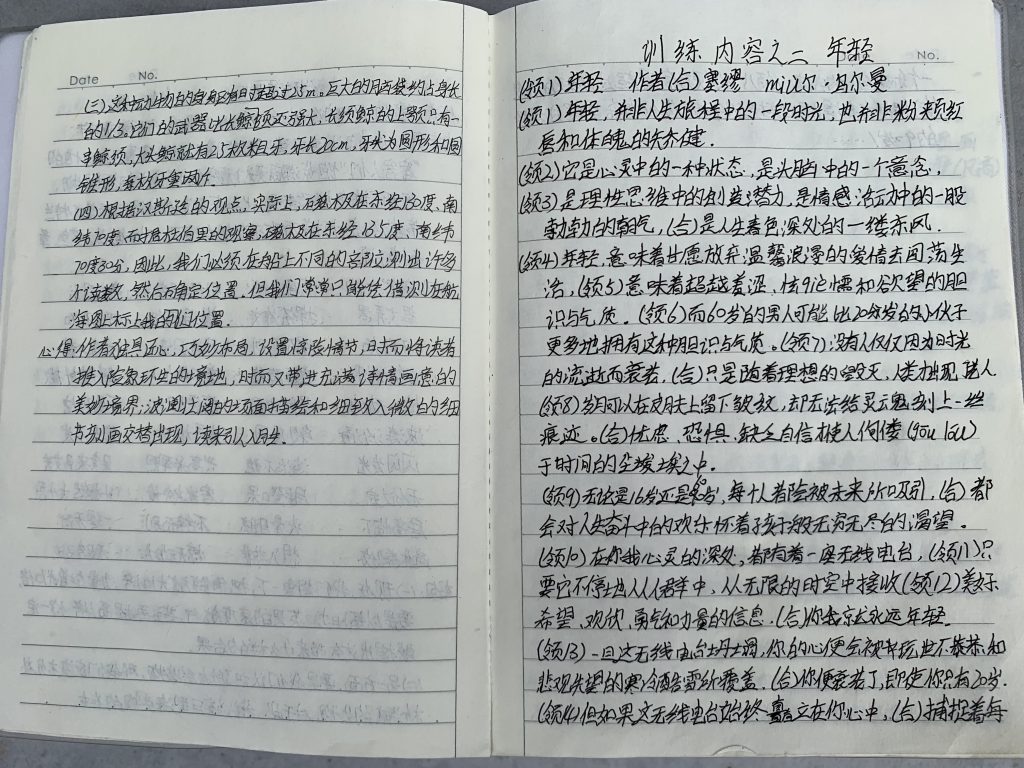 Date No.
(三)这种抹香鲸的身长有时超过25m。巨大的圆筒形的头占身长
的1/3。它们的武器比长鲸须还强大,长须鲸的上颚只有一
串鲸须,大头鲸就有25枚粗牙,牙长20cm,牙尖为圆形和圆
锥形,每枚牙重两斤。
(四)根据汉斯廷的观点,实际上,磁极在东经130度、南
纬70度,而根据杜伯里的观察,磁极在东经135度、南纬
70度30分,因此,我们必须在船上不同的部位测出许多
个读数,然后确定位置。但我们常常只能凭借测在航
海图上标上我们位置。
心得:作者独具匠心,巧妙布局,设置惊险情节,时而将读者
推入险象环生的境地,时而又带进充满诗情画意的
美妙境界;波澜壮阔的场面描绘和细致入微的细
节刻画交替出现,读来引人入胜。
No.
训练内容之二 年轻
(领1)年轻 作者(合)塞缪 miù尔·乌尔曼
(领1)年轻,并非人生旅程中的一段时光,也并非粉颊红
唇和体魄的矫健。
(领2)它是心灵中的一种状态,是头脑中的一个意念,
(领3)是理性思维中的创造潜力,是情感活动中的一股
勃勃的朝气,(合)是人生春色深处的一缕东风。
(领4)年轻,意味着甘愿放弃温馨浪漫的爱情去闯荡生
活,(领5)意味着超越羞涩、怯懦和欲望的胆
识与气质。(领6)而60岁的男人可能比20岁的小伙子
更多地拥有这种胆识与气质。(领7)没有人仅仅因为时光
的流逝而衰老,(合)只是随着理想的毁灭,人类出现老人
(领8)岁月可以在皮肤上留下皱纹,却无法给灵魂刻上一丝
痕迹。(合)忧虑、恐惧、缺乏自信才使人佝偻(gōu lóu)
于时间的尘埃之中。
(领9)无论是16岁还是60岁,每个人都会被未来所吸引,(合)都
会对人生奋斗中的欢乐怀着孩子般无穷无尽的渴望。
(领10)在你我心灵的深处,都有着一座无线电台,(领11)只
要它不停地从人群中,从无限的时空中接收(领12)美好
希望、欢欣、勇气和力量的信息,(合)你我就永远年轻。
(领13)一旦这无线电台坍塌,你的心便会被玩世不恭和
悲观失望的寒冷酷雪所覆盖,(合)你便衰老了,即使你只有20岁。
(领14)但如果这无线电台始终矗立在你心中,(合)捕捉着每